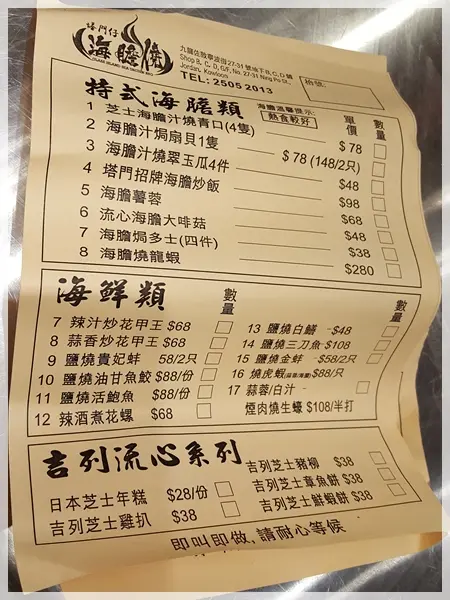 塔門仔
海膽燒
九龍佐敦寧波街27-31號地下B,C,D鋪
Shop B, C, D, G/F, No. 27-31 Ning Po St.,
Jordan, Kowloon
TEL: 2505 2013
枱號:
特式海膽類
海膽溫馨提示:
熱食較好
單價
數量
1 芝士海膽汁燒青口(4隻) $78
2 海膽汁焗扇貝1隻 $78 (148/2只)
3 海膽汁燒翠玉瓜4件 $48
4 塔門招牌海膽炒飯 $98
5 海膽薯蓉 $68
6 流心海膽大啡菇 $48
7 海膽焗多士(四件) $38
8 海膽燒龍蝦 $280
海鮮類
數量
數量
7 辣汁炒花甲王 $68
8 蒜香炒花甲王 $68
9 鹽燒貴妃蚌 58/2只
10 鹽燒油甘魚鮫 $88/份
11 鹽燒活鮑魚 $88/份
12 辣酒煮花螺 $68
13 鹽燒白鱔 $48
14 鹽燒三刀魚 $108
15 鹽燒金蚌 $58/2只
16 燒虎蝦(蒜蓉/海膽) $88/只
17 蒜蓉/白汁
煙肉燒生蠔 $108/半打
吉列流心系列
日本芝士年糕 $28/份
吉列芝士雞扒 $38
吉列芝士豬柳 $38
吉列芝士章魚餅 $38
吉列芝士鮮蝦餅 $38
即叫即做, 請耐心等候